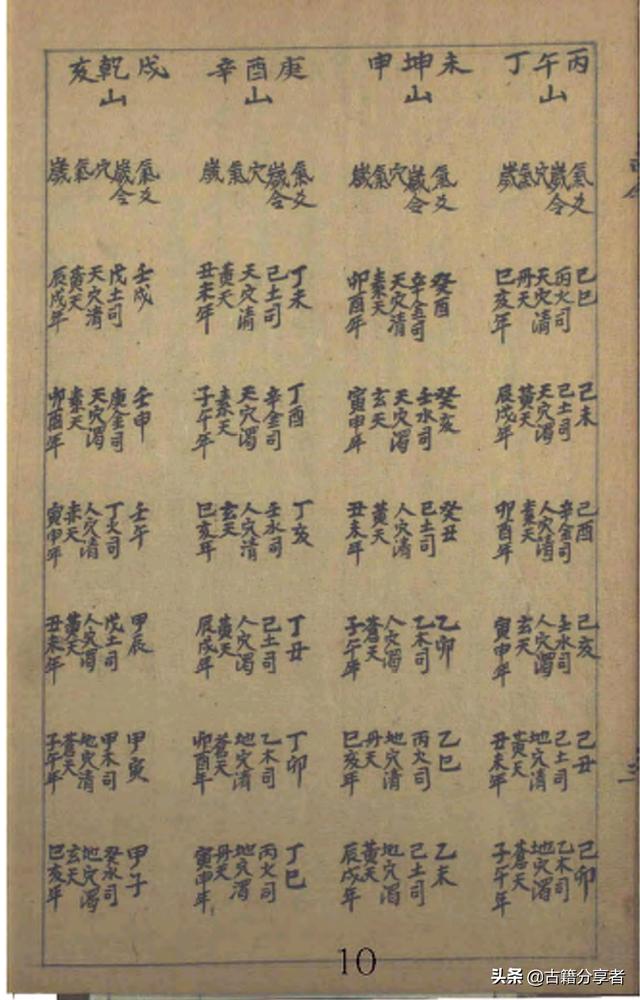 丙午丁
山
氣爻
歲令
穴
氣
歲
己巳
丙火司
天穴清
丹天
巳亥年
己未
己土司
天穴濁
黃天
辰戌年
己酉
辛金司
人穴清
素天
卯酉年
己亥
壬水司
人穴濁
玄天
寅申年
己丑
己土司
地穴清
黃天
丑未年
己卯
乙木司
地穴濁
蒼天
子午年
未坤申
山
氣爻
歲令
穴
氣
歲
癸酉
辛金司
天穴清
素天
卯酉年
癸亥
壬水司
天穴濁
玄天
寅申年
癸丑
己土司
人穴清
黃天
丑未年
乙卯
乙木司
人穴濁
蒼天
子午年
乙巳
丙火司
地穴清
丹天
巳亥年
乙未
己土司
地穴濁
黃天
辰戌年
庚酉辛
山
氣爻
歲令
穴
氣
歲
丁未
己土司
天穴清
黃天
丑未年
丁酉
辛金司
天穴濁
素天
子午年
丁亥
壬水司
人穴清
玄天
巳亥年
丁丑
己土司
人穴濁
黃天
辰戌年
丁卯
乙木司
地穴清
蒼天
卯酉年
丁巳
丙火司
地穴濁
丹天
寅申年
戌乾亥
山
氣爻
歲令
穴
氣
歲
壬戌
戊土司
天穴清
黃天
辰戌年
壬申
庚金司
天穴濁
素天
卯酉年
壬午
丁火司
人穴清
赤天
寅申年
甲辰
戊土司
人穴濁
黃天
丑未年
甲寅
甲木司
地穴清
蒼天
子午年
甲子
癸水司
地穴濁
玄天
巳亥年
10
头条 @古籍分享者